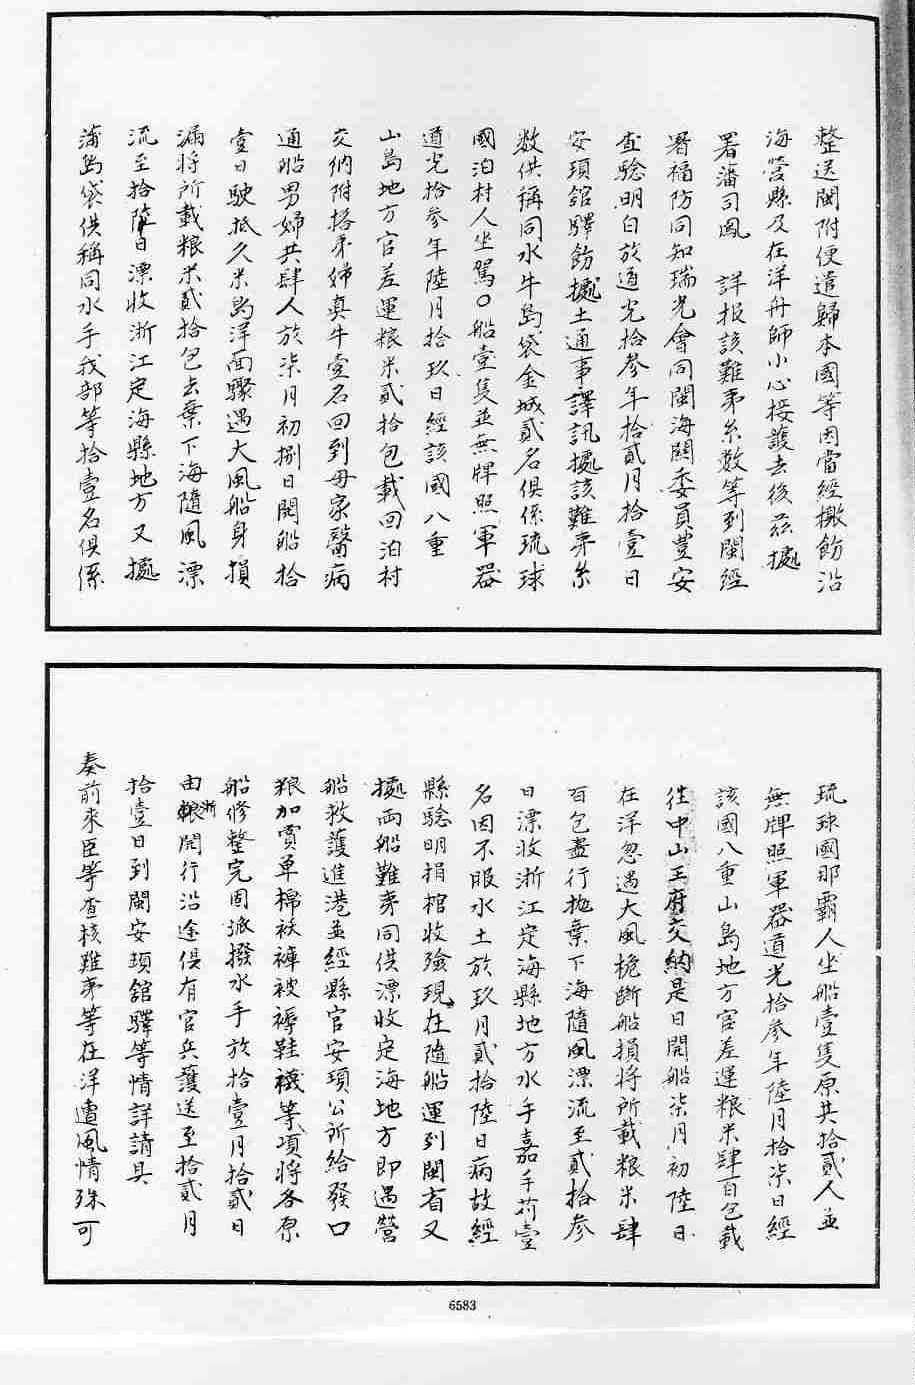 整送閩附便遣歸本國等因當經檄飭沿
海營縣及在洋舟師小心接護去後茲據
署藩司鳳 詳报該難夷糸数等到閩經
署福防同知瑞光會同閩海關委員豊安
查驗明白於道光拾參年拾貳月拾壹日
安頓舘驛飭據土通事譯訊據該難夷糸
数供稱同水牛島袋金城貳名俱係琉球
國泊村人坐駕〇船壹隻並無牌照軍器
道光拾參年陸月拾玖日經該國八重
山島地方官差運粮米貳拾包載回泊村
交納附搭弟婦真牛壹名回到母家醫病
通船男婦共肆人於柒月初捌日開船拾
壹日駛抵久米島洋面驟遇大風船身損
漏將所載粮米貳拾包去棄下海隨風漂
流至拾陸日漂收浙江定海縣地方又據
蒲島袋供稱同水手我部等拾壹名俱係
琉球國那霸人坐船壹隻原共拾貳人並
無牌照軍器道光拾參年陸月拾柒日經
該國八重山島地方官差運粮米肆百包載
往中山王府交納是日開船柒月初陸日
在洋忽遇大風桅斷船損將所載粮米肆
百包盡行抛棄下海隨風漂流至貳拾參
日漂收浙江定海縣地方水手嘉手苅壹
名因不服水土於玖月貳拾陸日病故經
縣驗明捐棺收殮現在隨船運到閩省又
據兩船難夷同供漂收定海地方即遇營
船救護進港並經縣官安頓公所給發口
粮加賞单棉袄褲被褥鞋襪等項將各原
船修整完固派撥水手於拾壹月拾貳日
由浙開行沿途俱有官兵護送至拾貳月
拾壹日到閩安頓舘驛等情詳請具
奏前來臣等查核難夷等在洋遭風情殊可
6583